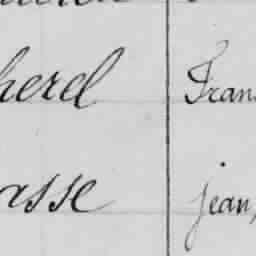 herel Fran
asse jean,